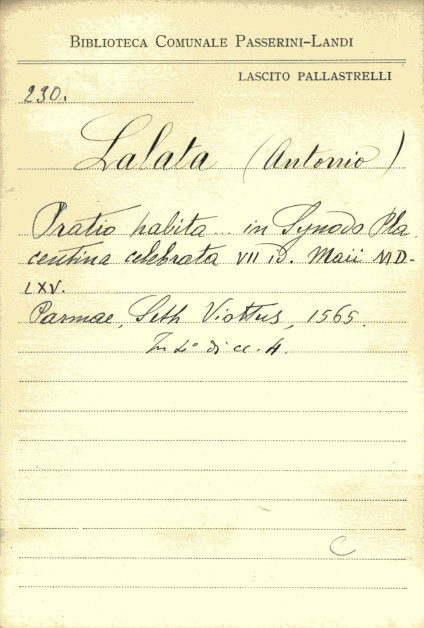 BIBLIOTECA COMUNALE PASSERINI-LANDI
LASCITO PALLASTRELLI
230.
Lalata (Antonio)
Oratio habita .. in Synodo Pla
centina celebrata VII id. Maii MD-
LXV.
Parmae, Seth Viottus, 1565.
In 4° di cc. 4.
C